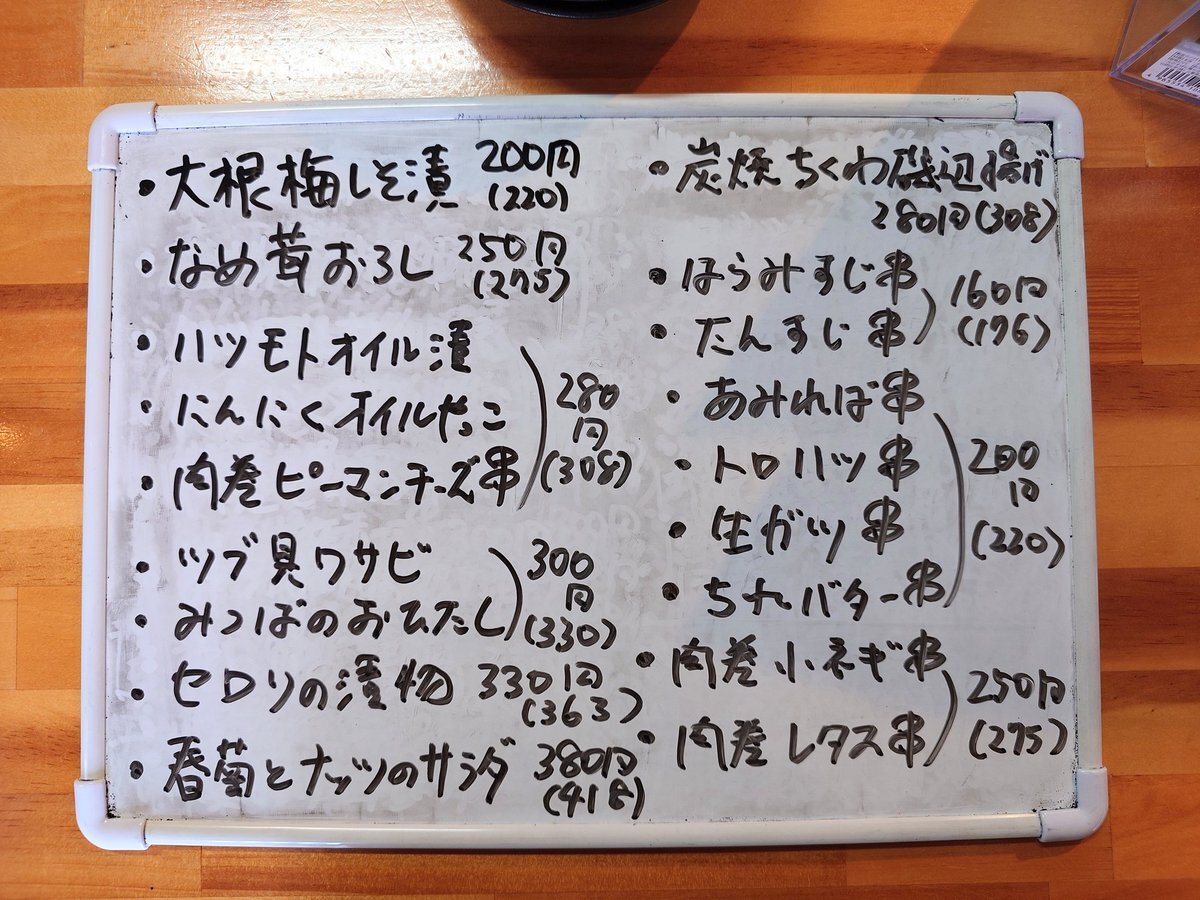 ・大根梅しそ漬 200円
(220)
・なめ茸おろし 250円
(275)
・ハツモトオイル漬
・にんにくオイルやっこ
・肉巻ピーマンチーズ串
280
円
(308)
・ツブ貝ワサビ
・みつばのおひたし
300
円
(330)
・セロリの漬物 330円
(363)
・春菊とナッツのサラダ 380円
(418)
・炭焼ちくわ磯辺揚げ
280円(308)
・はらみすじ串
・たんすじ串
160円
(176)
・あみればば串
・トロハツ串
・生ガツ串
・ちれバター串
200
円
(220)
・肉巻小ネギ串
・肉巻レタス串
250円
(275)